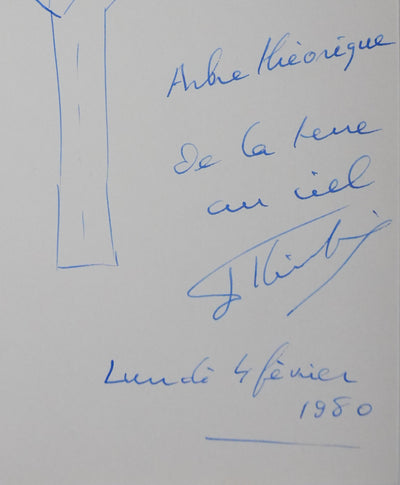 Arbre théorique
De la terre
au ciel
Lundi 4 février
1980